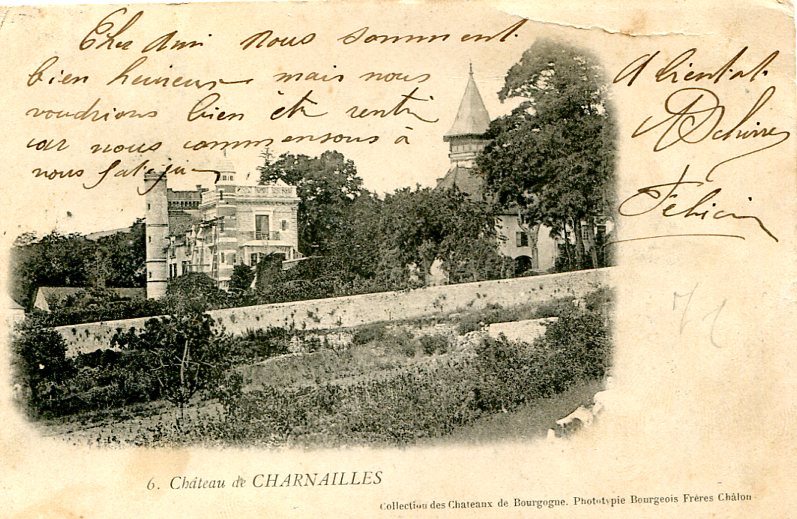 Cher ami nous sommes
bien heureux mais nous
voudrions bien être rentré
car nous commensons à
nous
A bientôt
Félicien
71
6. Château de CHARNAILLES
Collection des Chateaux de Bourgogne. Phototypie Bourgeois Frères Châlon